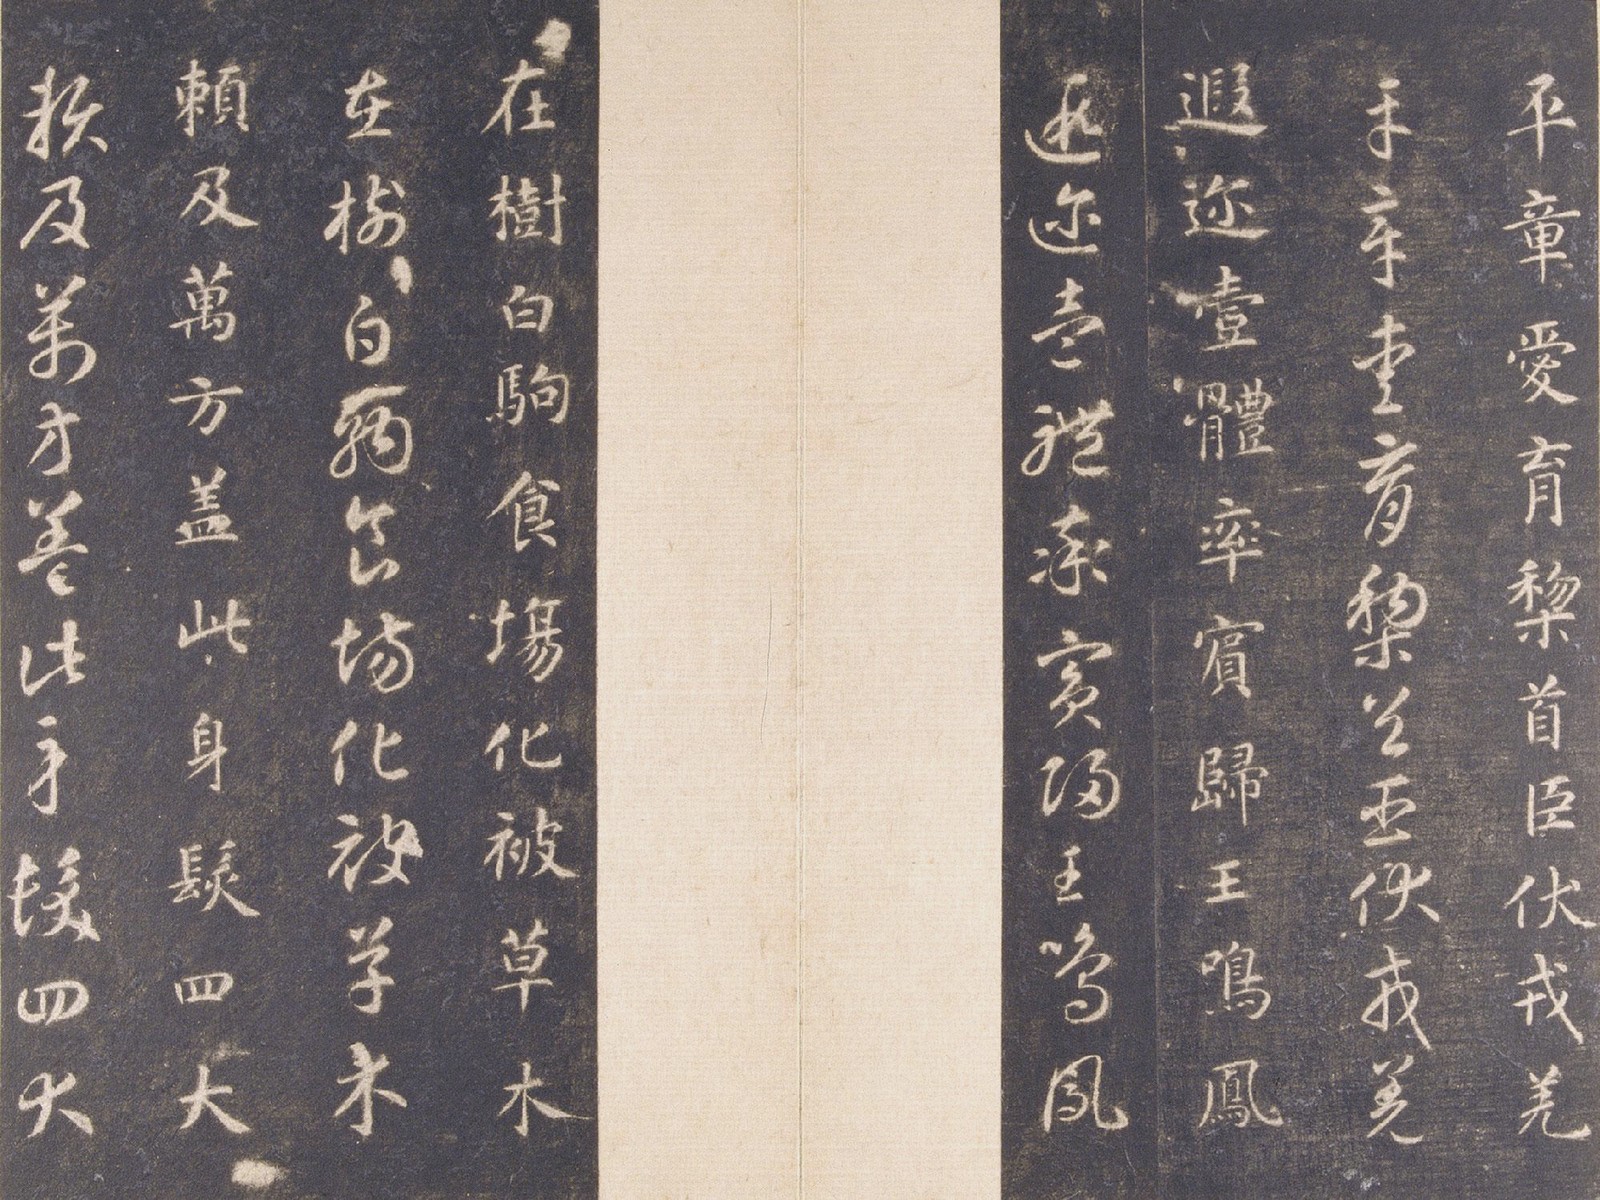 平章愛育黎首臣伏戎羌
平章愛育黎首臣伏戎羌
遐迩壹體率賓歸王鳴鳳
遐迩壹體率賓歸王鳴鳳
在樹白駒食場化被草木
在樹白駒食場化被草木
賴及萬方盖此身髮四大
賴及萬方盖此身髮四大